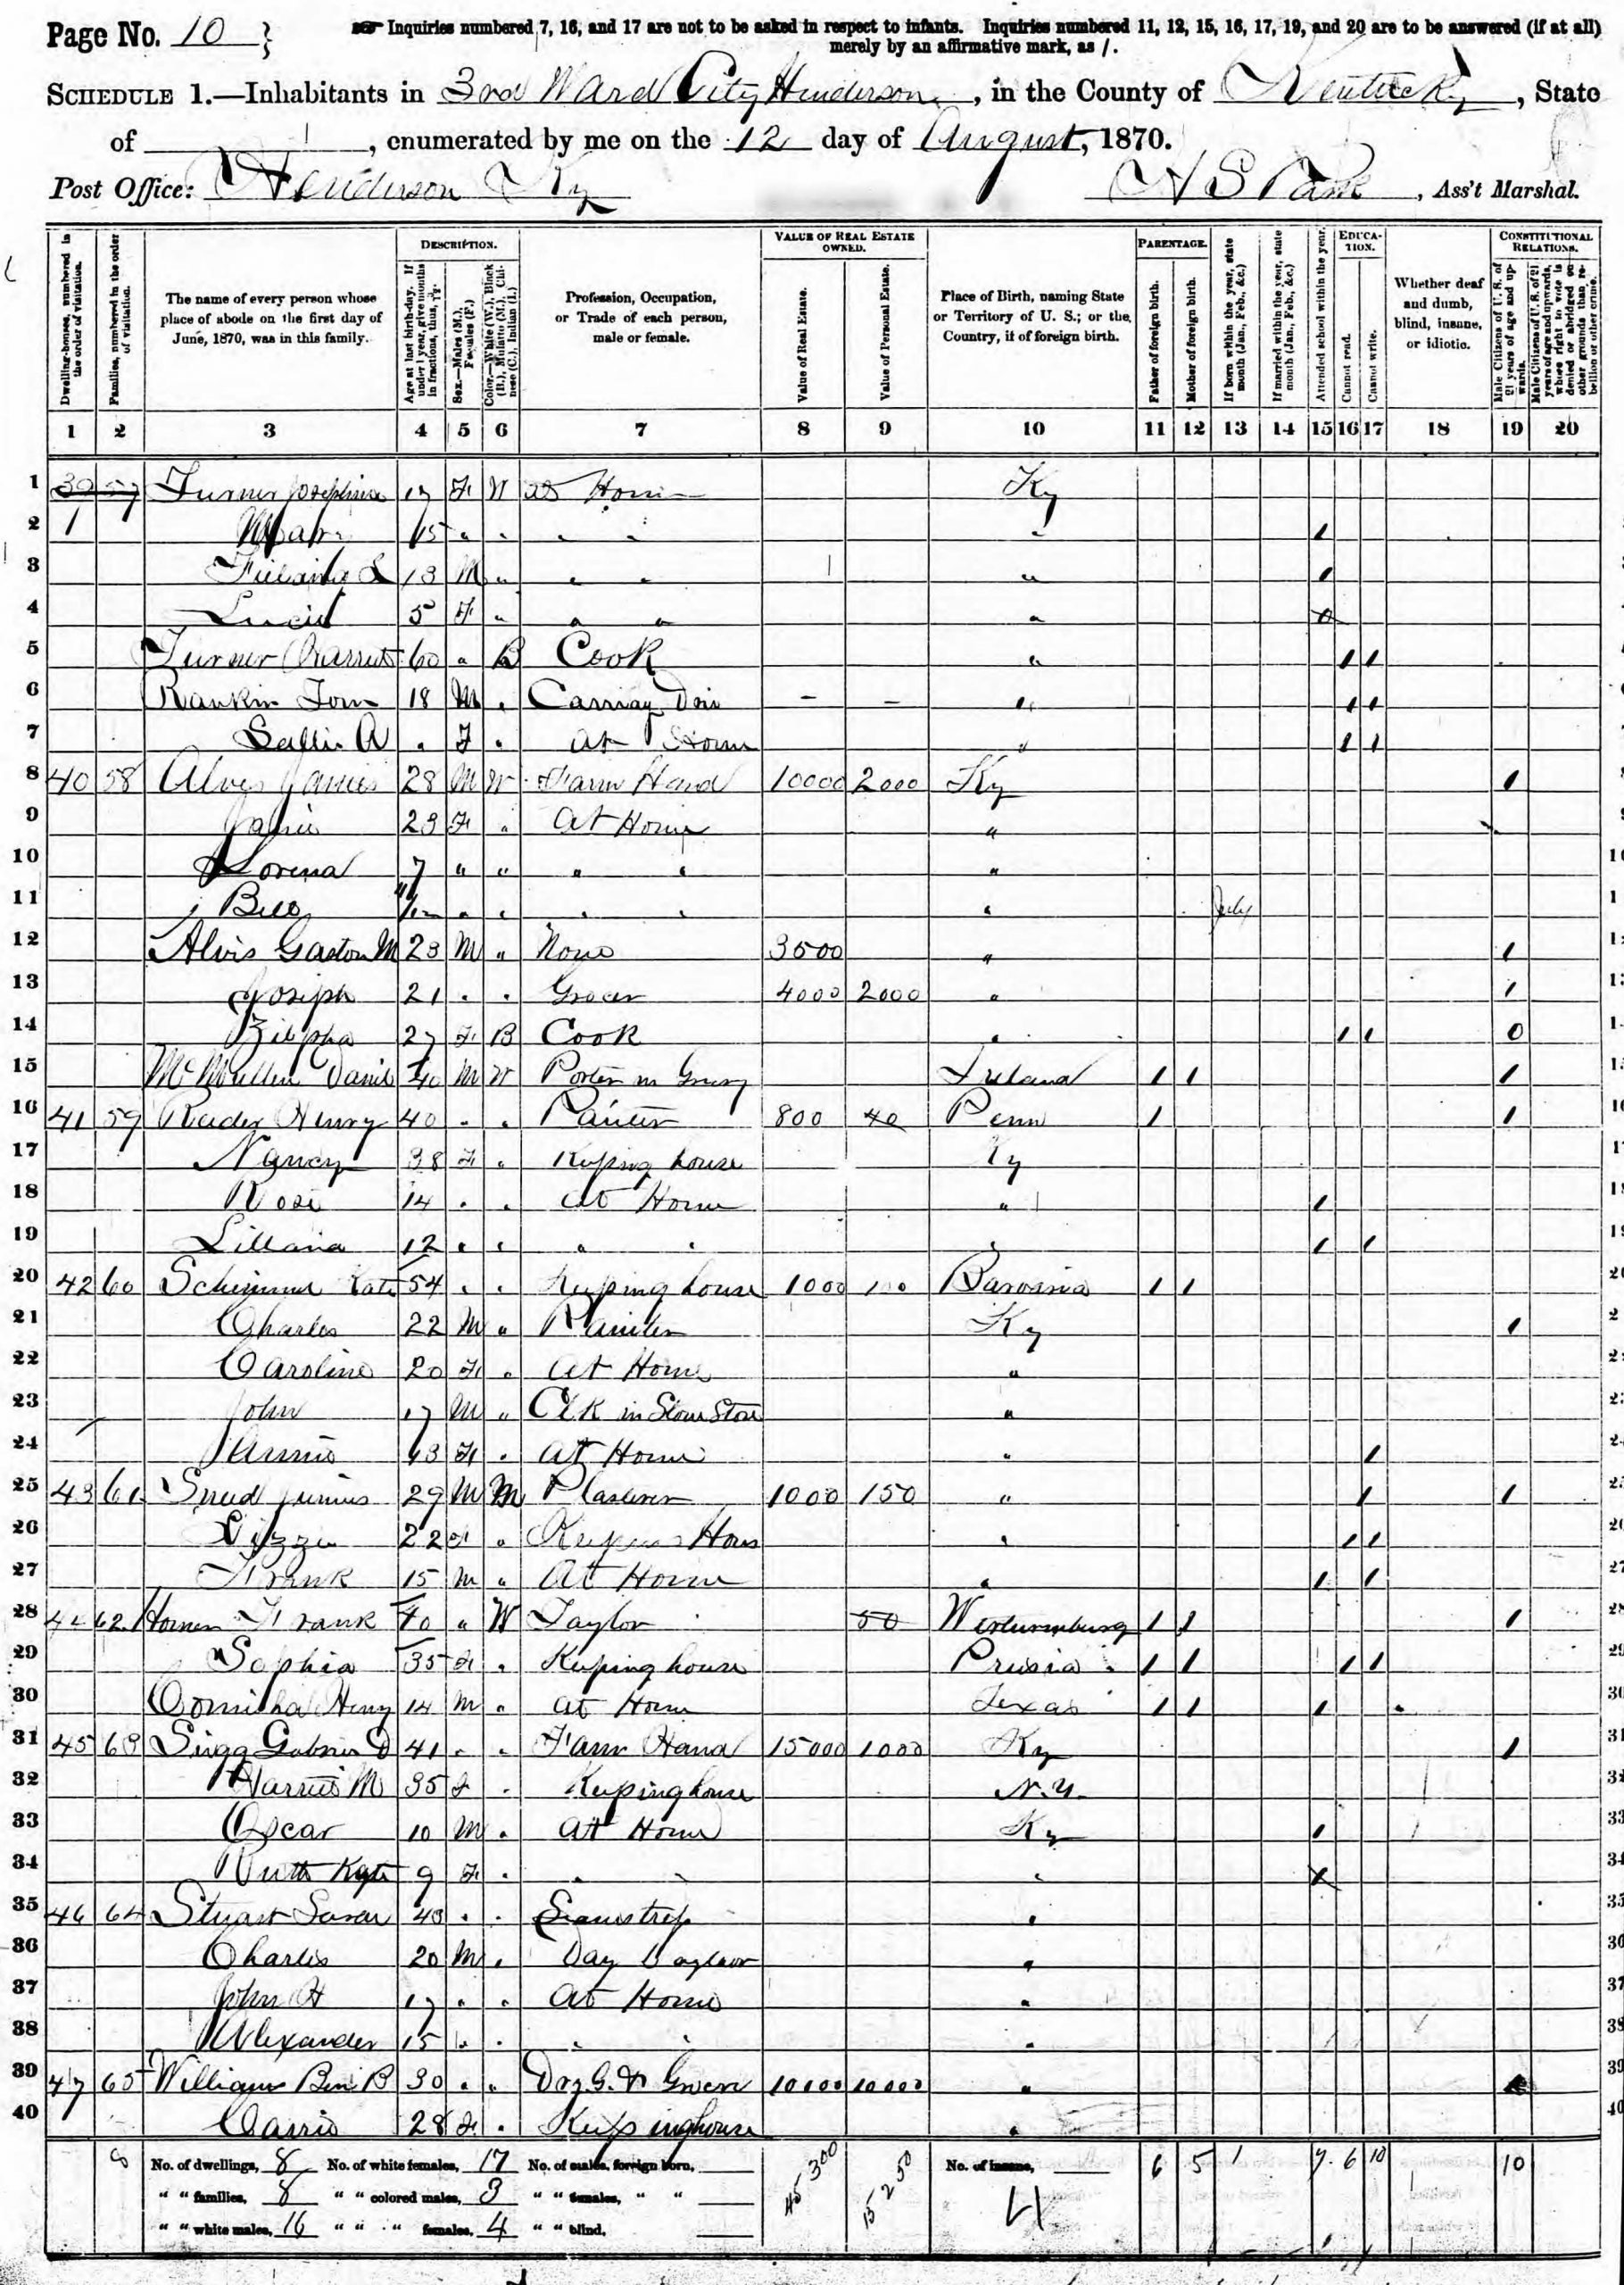 Page No. 10 }
Inquiries numbered 7, 16, and 17 are not to be asked in respect to infants. Inquiries numbered 11, 12, 15, 16, 17, 19, and 20 are to be answered (if at all)
merely by an affirmative mark, as /.
SCHEDULE 1.—Inhabitants in 3rd Ward City Henderson, in the County of Kentucky, State
of , enumerated by me on the 12 day of August, 1870.
Post Office: Henderson Ky H S Park, Ass't Marshal.
DESCRIPTION. VALUE OF REAL ESTATE OWNED. PARENTAGE. EDUCATION. CONSTITUTIONAL RELATIONS.
Dwelling-houses, numbered in the order of visitation.
Families, numbered in the order of visitation.
The name of every person whose place of abode on the first day of June, 1870, was in this family.
Age at last birth-day. If under 1 year, give months in fractions, thus, 3/12.
Sex.—Males (M.), Females (F.)
Color.—White (W.), Black (B.), Mulatto (M.), Chinese (C.), Indian (I.)
Profession, Occupation, or Trade of each person, male or female.
Value of Real Estate.
Value of Personal Estate.
Place of Birth, naming State or Territory of U. S.; or the Country, if of foreign birth.
Father of foreign birth.
Mother of foreign birth.
If born within the year, state month (Jan., Feb., &c.)
If married within the year, state month (Jan., Feb., &c.)
Attended school within the year.
Cannot read.
Cannot write.
Whether deaf and dumb, blind, insane, or idiotic.
Male Citizens of U. S. of 21 years of age and upwards.
Male Citizens of U. S. of 21 years of age and upwards, whose right to vote is denied or abridged on other grounds than rebellion or other crime.
1 2 3 4 5 6 7 8 9 10 11 12 13 14 15 16 17 18 19 20
1 39 57 Turner Josephine 17 F W at Home Ky
2 1 Mary 15 " " " " " /
3 13 M " " " " /
4 5 F " " " "
5 Turner Harriet 60 " B Cook " / /
6 Rankin Tom 18 M " Carriag Driv - - " / /
7 Sallie A " F " At Home " / /
8 40 58 Alves James 28 M W Farm Hand 10000 2000 Ky /
9 23 F " At Home "
10 Lorena 7 " " " " "
11 Bell 11/12 " " " " " July
12 Alvis Gaston M 23 M " None 3500 " /
13 Joseph 21 " " Grocer 4000 2000 " /
14 Zilpha 27 F B Cook " / / 0
15 McMullen Danil 40 M W Porter in Grocry Ireland / / /
16 41 59 Reeder Henry 40 " " Painter 800 40 Penn / /
17 Nancy 38 F " Keping house Ky
18 Rose 14 " " At Home " /
19 Lillana 12 " " " " " / /
20 42 60 Schimmer Kate 54 " " Keeping house 1000 100 Bavaria / /
21 Charles 22 M " Painter Ky /
22 Caroline 20 F " At Home "
23 John 17 M " Clk in Store "
24 Annie 13 F " At Home " /
25 43 61 Snead Junius 29 M M Plasterer 1000 150 " / /
26 Lizzie 22 F " Keping Hous " / /
27 Frank 15 M " At Home " / /
28 44 62 Homer Frank 40 " W Taylor 50 Wirtumburg / / /
29 Sophia 35 F " Keping house Prusia / / / /
30 Henry 14 M " At Home Texas / / /
31 45 63 Sugg Gabriel D 41 " " Farm Hand 15000 1000 Ky /
32 Harriet M 35 F " Keeping house N.Y.
33 Oscar 10 M " At Home Ky /
34 Ruth Kate 9 F " " " X
35 46 64 Stuart Susan 43 " " Seamstress "
36 Charles 20 M " Day Laybor "
37 John H 17 " " At Home "
38 Alexander 15 " " " "
39 47 65 William Ben B 30 " " Dry G. & Grocer 10000 10000 "
40 Carrie 28 F " Keeping house "
8 No. of dwellings, 8 No. of white females, 17 No. of males, foreign born, No. of insane, 6 5 1 7 6 10 10
" " families, 8 " " colored males, 3 " " females, " " 45 300 15 250 4
" " white males, 16 " " " females, 4 " " blind,